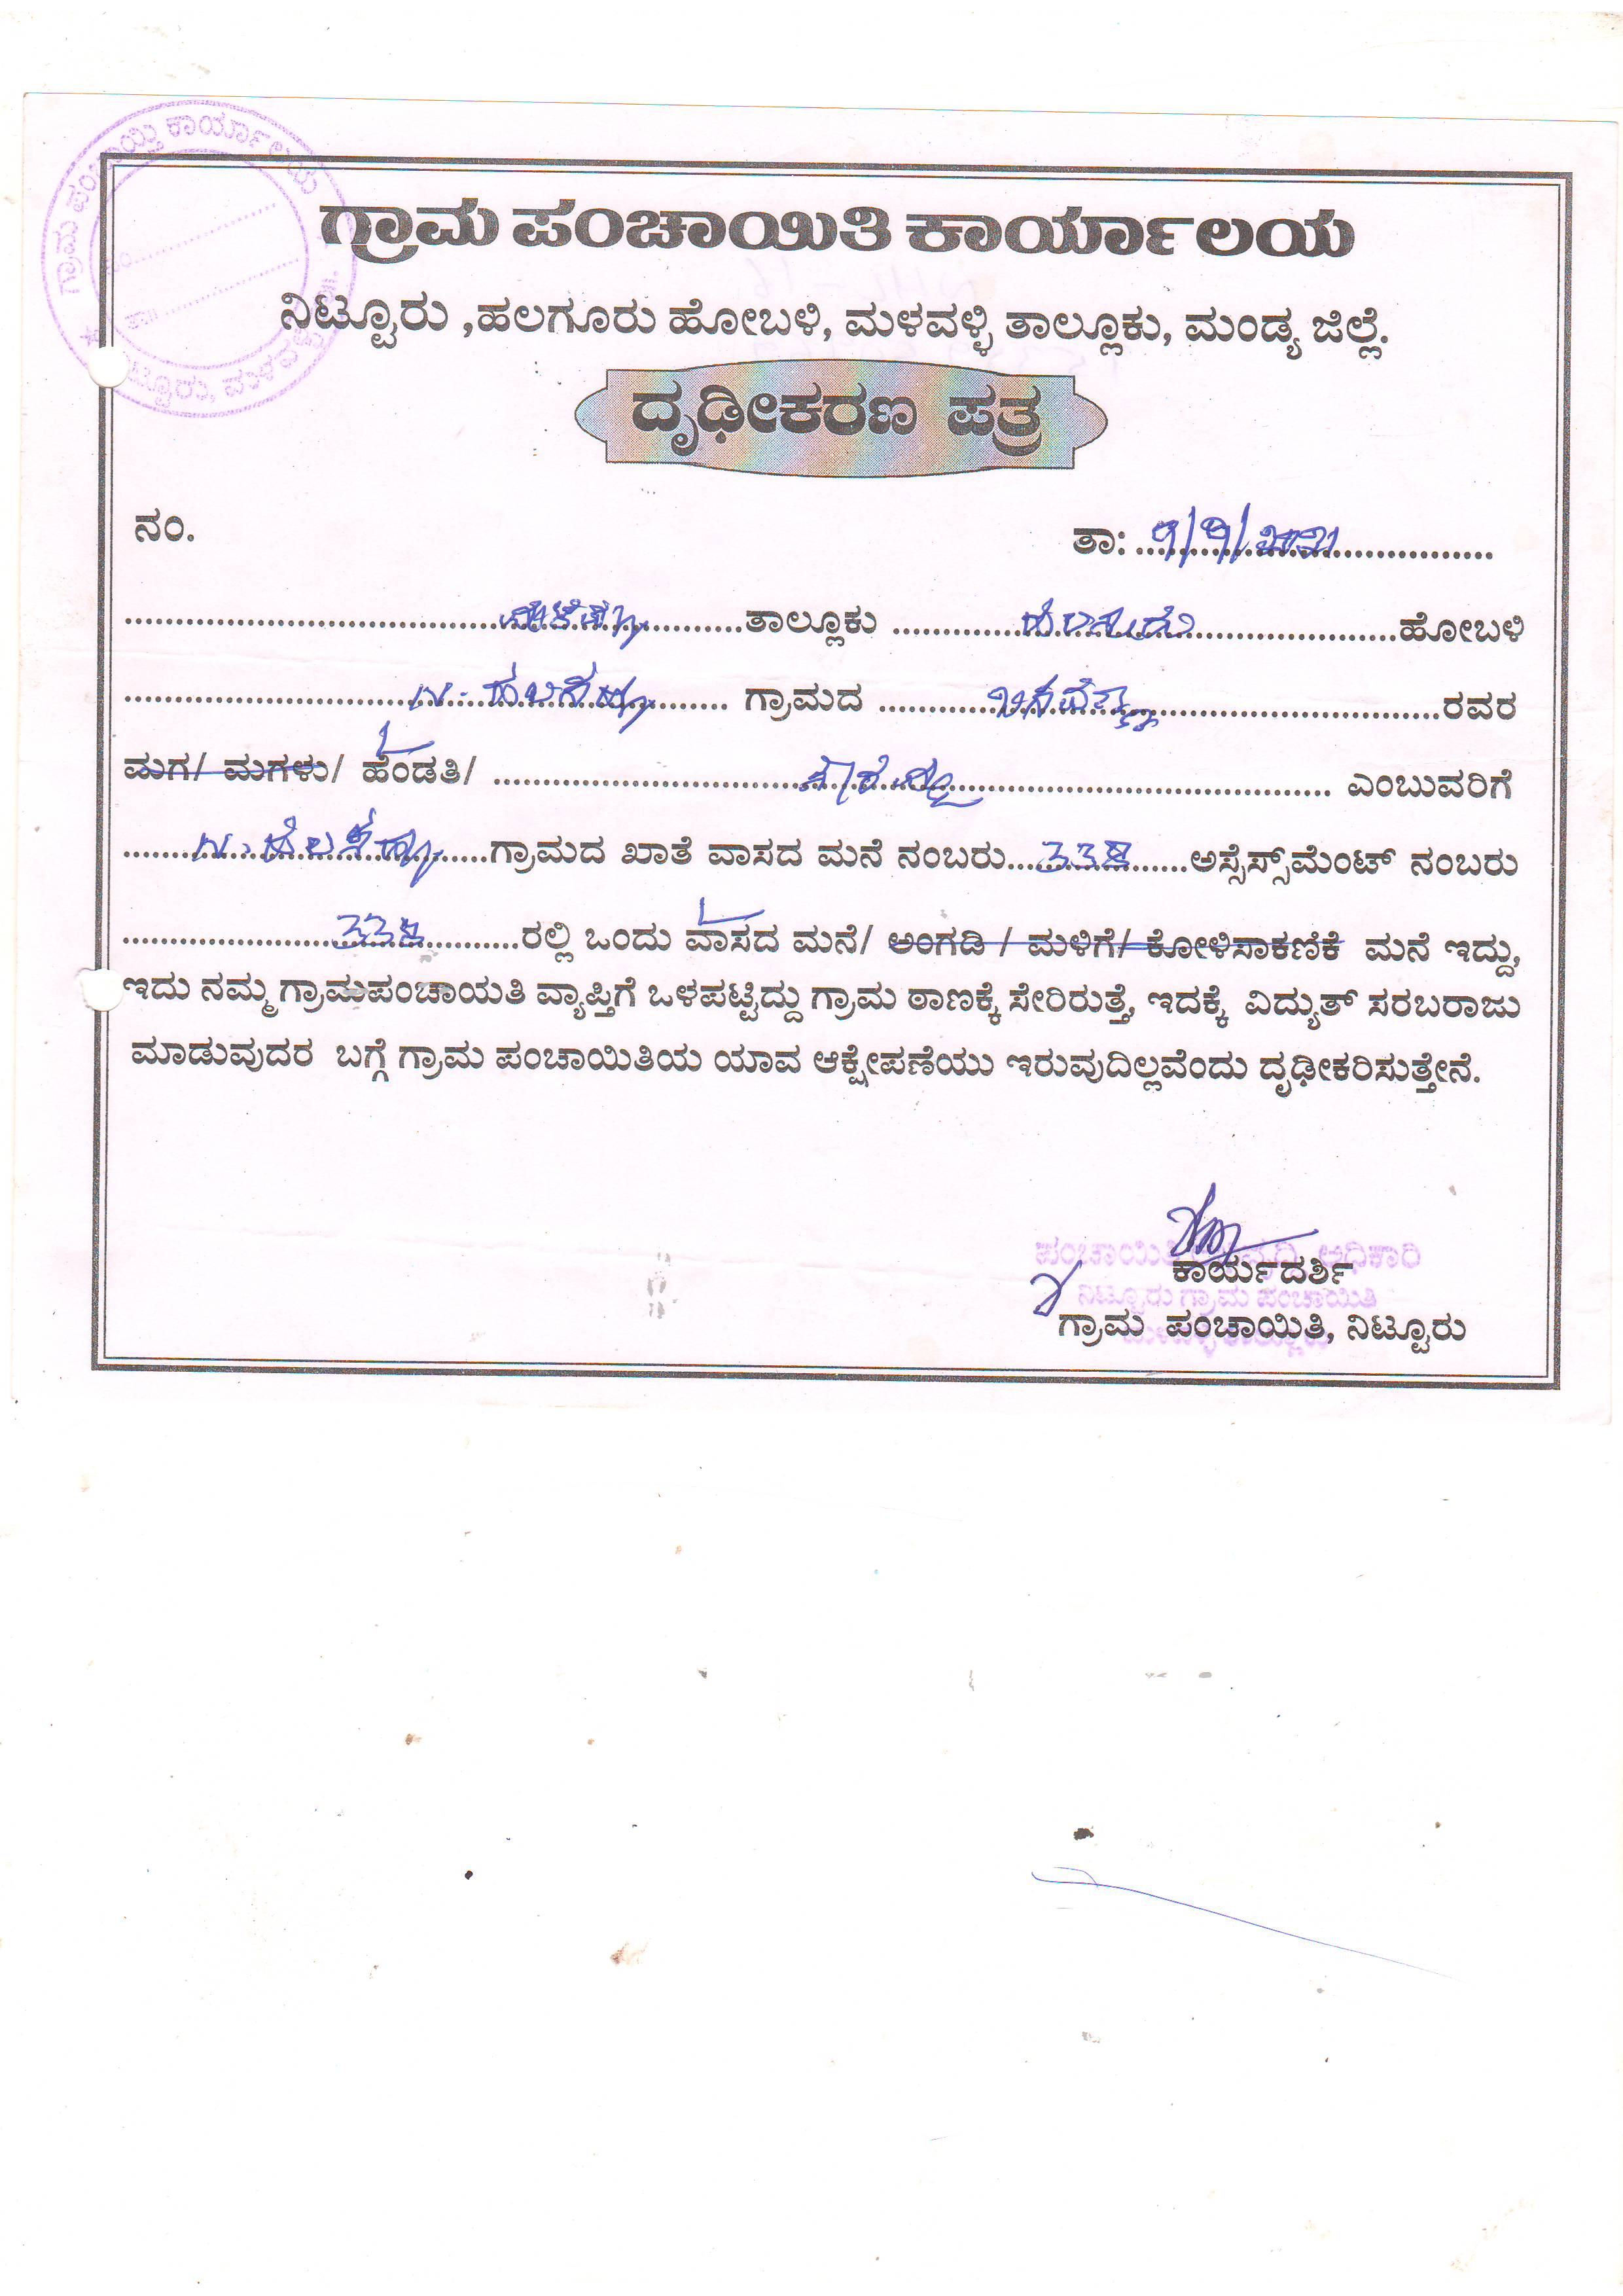 ಗ್ರಾಮ ಪಂಚಾಯಿತಿ ಕಾರ್ಯಾಲಯ
ನಿಟ್ಟೂರು ,ಹಲಗೂರು ಹೋಬಳಿ, ಮಳವಳ್ಳಿ ತಾಲ್ಲೂಕು, ಮಂಡ್ಯ ಜಿಲ್ಲೆ.
ದೃಢೀಕರಣ ಪತ್ರ
ನಂ. ತಾ:
ಮಳವಳ್ಳಿ ತಾಲ್ಲೂಕು ಹಲಗೂರು ಹೋಬಳಿ
ಗ್ರಾಮದ ರವರ
ಮಗ/ ಮಗಳು/ ಹೆಂಡತಿ/ ಎಂಬುವರಿಗೆ
ಗ್ರಾಮದ ಖಾತೆ ವಾಸದ ಮನೆ ನಂಬರು ಅಸ್ಸೆಸ್ಸ್‌ಮೆಂಟ್ ನಂಬರು
ರಲ್ಲಿ ಒಂದು ವಾಸದ ಮನೆ/ ಅಂಗಡಿ / ಮಳಿಗೆ/ ಕೋಳಿಸಾಕಣಿಕೆ ಮನೆ ಇದ್ದು,
ಇದು ನಮ್ಮ ಗ್ರಾಮಪಂಚಾಯತಿ ವ್ಯಾಪ್ತಿಗೆ ಒಳಪಟ್ಟಿದ್ದು ಗ್ರಾಮ ಠಾಣಕ್ಕೆ ಸೇರಿರುತ್ತೆ, ಇದಕ್ಕೆ ವಿದ್ಯುತ್ ಸರಬರಾಜು
ಮಾಡುವುದರ ಬಗ್ಗೆ ಗ್ರಾಮ ಪಂಚಾಯಿತಿಯ ಯಾವ ಆಕ್ಷೇಪಣೆಯು ಇರುವುದಿಲ್ಲವೆಂದು ದೃಢೀಕರಿಸುತ್ತೇನೆ.
ಕಾರ್ಯದರ್ಶಿ
ನಿಟ್ಟೂರು ಗ್ರಾಮ ಪಂಚಾಯಿತಿ
ಗ್ರಾಮ ಪಂಚಾಯಿತಿ, ನಿಟ್ಟೂರು